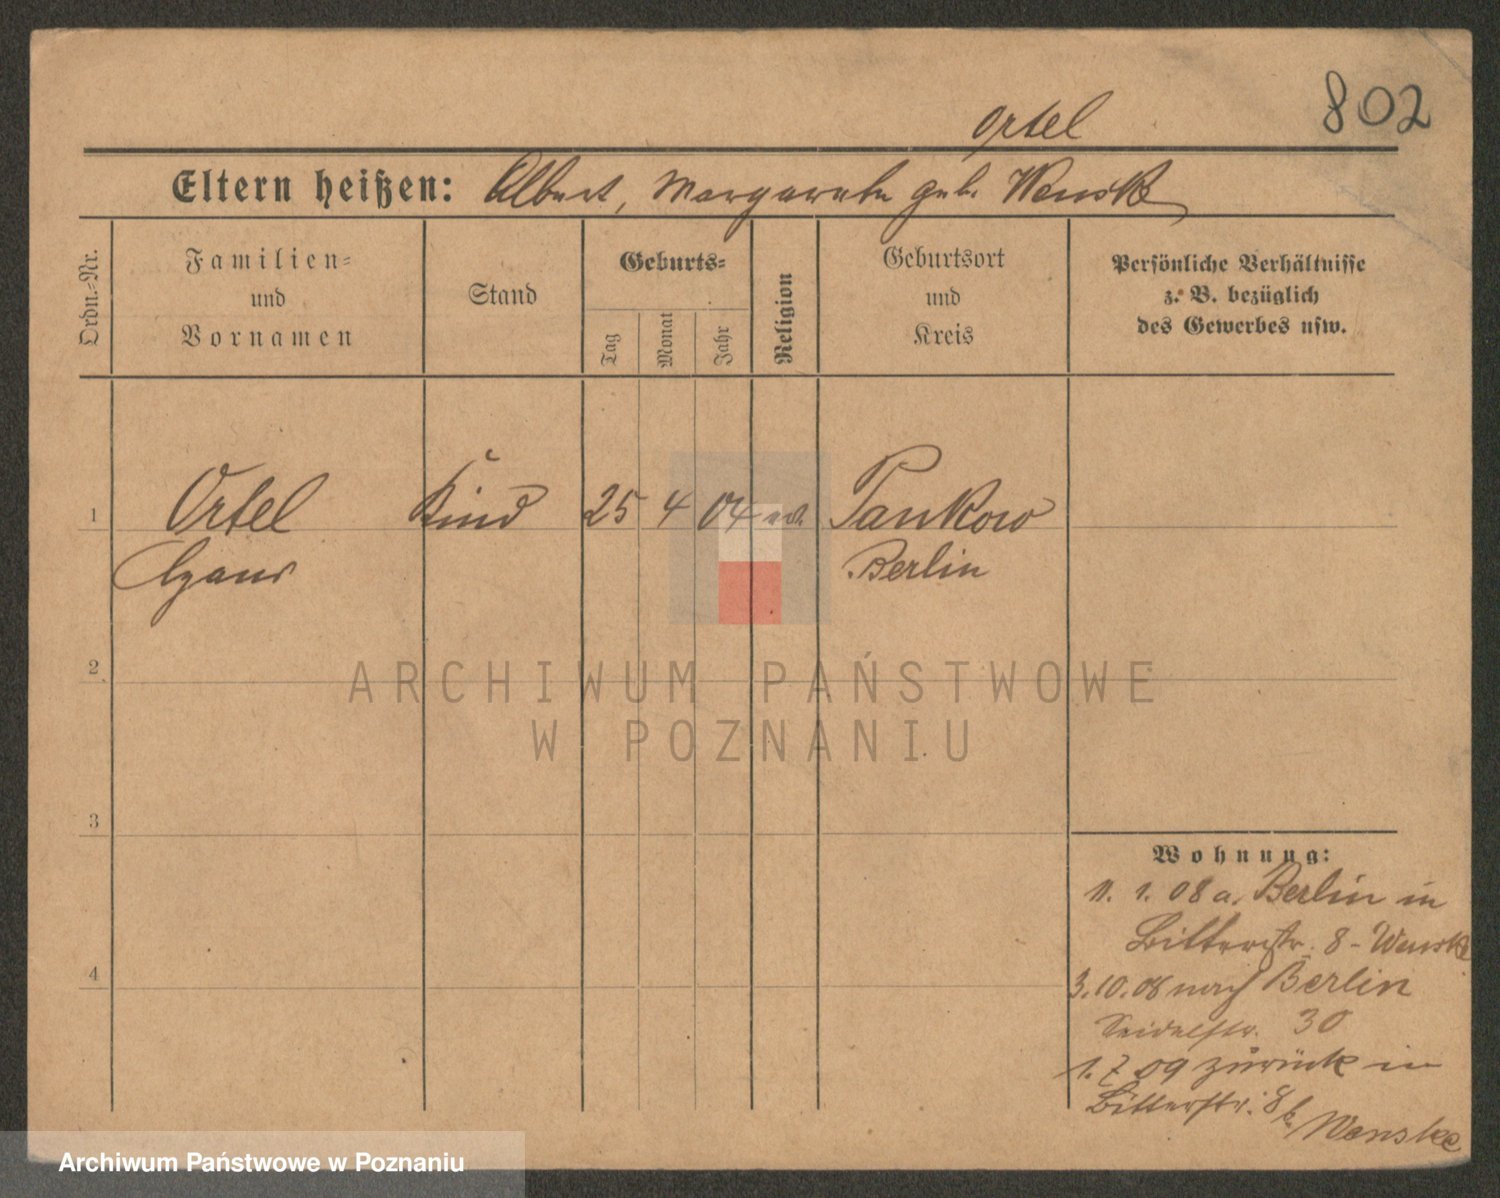 802
Ortel
Eltern heißen: Albert, Margarete geb. Wenske
Ordn.-Nr.
Familien-
und
Vornamen
Stand
Geburts-
Tag
Monat
Jahr
Religion
Geburtsort
und
Kreis
Persönliche Verhältnisse
z. B. bezüglich
des Gewerbes usw.
1 Ortel Kind 25 4 04 ev. Pankow
Berlin
2
3
4
Wohnung:
11. 1. 08 a. Berlin in
Bitterstr. 8 - Wenske
3.10.08 nach Berlin
Seidelstr. 30
1. 7 09 zurück in
Bitterstr. 8 b. Wenske
ARCHIWUM PAŃSTWOWE
W POZNANIU
Archiwum Państwowe w Poznaniu